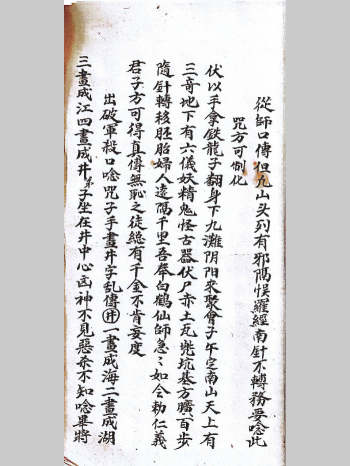 從師口傳但凡山头列有邪隅悮羅經南針不轉務要唸此
咒方可制化
伏以手拿鉄龍子翻身下九灘阴阳來聚會子午定南山天上有
三奇地下有六儀妖精鬼怪古器伏尸赤土瓦 坑墓方曠百步
隨針轉移胚胎婦人遠隔千里吾奉白鶴仙師急〻如令勅仁義
君子方可得真傳無恥之徒總有千金不肯妄度
出破軍殺口唸咒子手畫井字乱傳井一畫成海二畫成湖
三畫成江四畫成井弟子坐在井中心凶神不見惡杀不知唸畢將